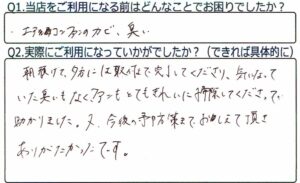 Q1.当店をご利用になる前はどんなことでお困りでしたか？
・エアコンファンのカビ、臭い
Q2.実際にご利用になっていかがでしたか？（できれば具体的に）
朝預けて、夕方には取りで完了してくださり、気になって
いた臭いもなくファンもとてもきれいに掃除してくださってい
助かりました。又、今後の予防策までおしえて頂き
ありがたかったです。